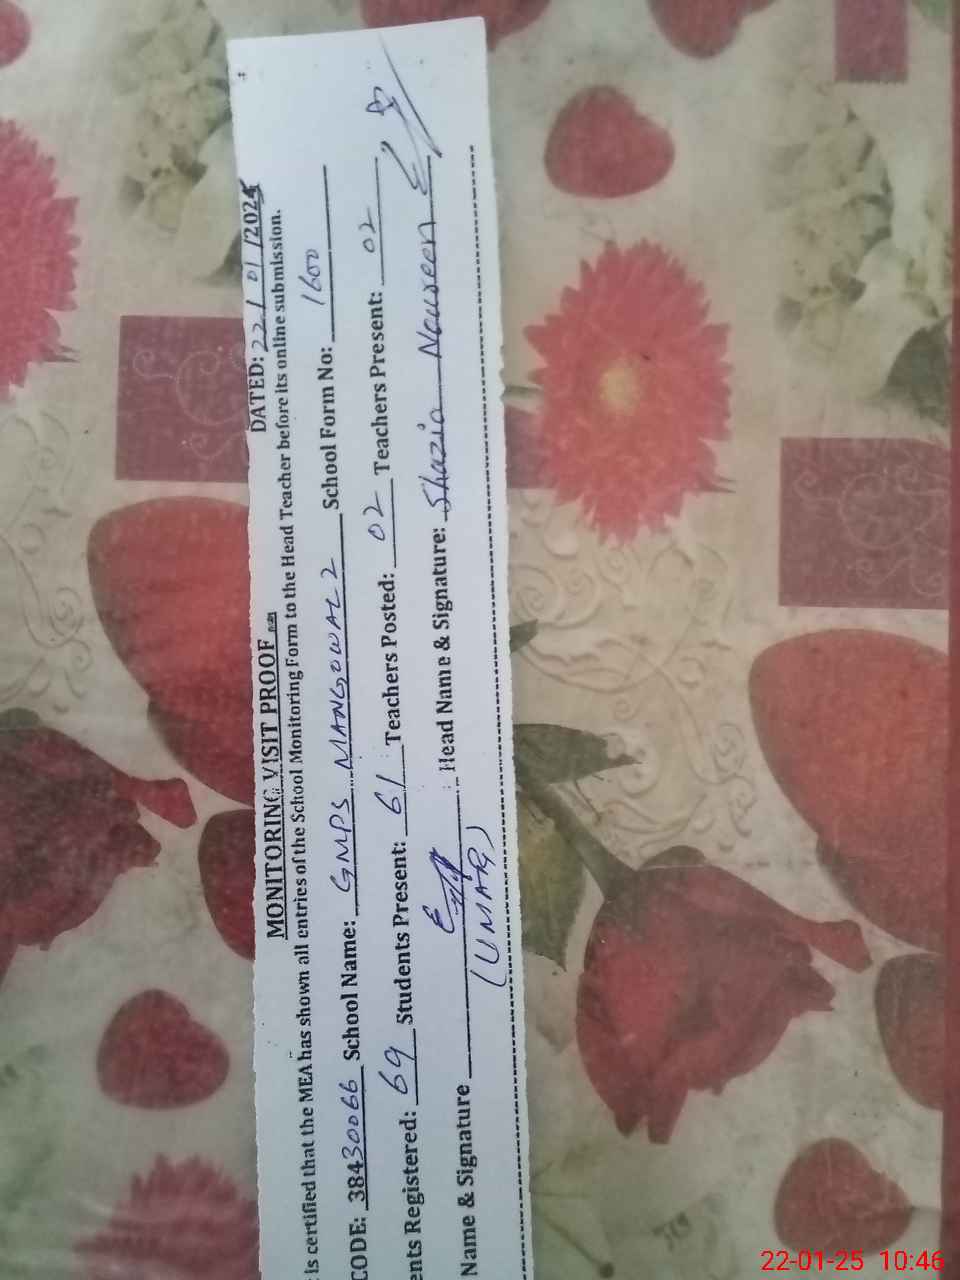 MONITORING VISIT PROOF
DATED: 22/01/2025
is certified that the MEA has shown all entries of the School Monitoring Form to the Head Teacher before its online submission.
CODE: 38430066 School Name: GMPS MANGOWAL 2 School Form No: 1600
ents Registered: 69 Students Present: 61 Teachers Posted: 02 Teachers Present: 02
Name & Signature Head Name & Signature: Shazia Nowreen
(UMAR)
22-01-25 10:46